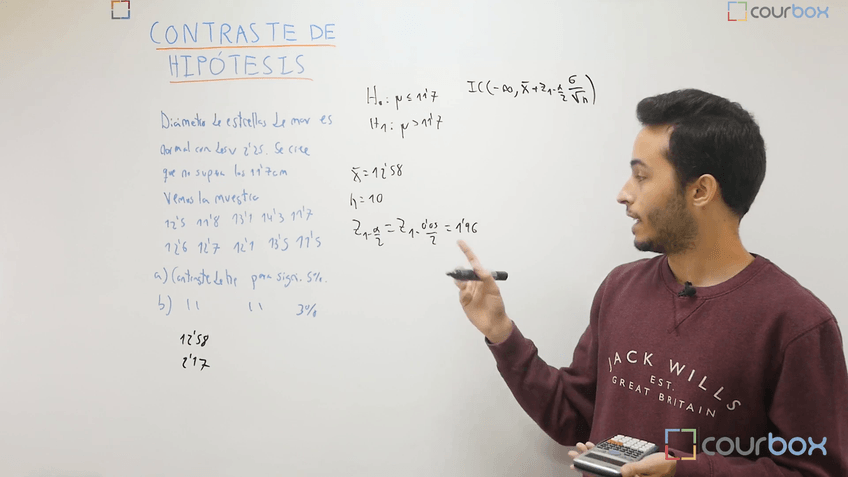 courbox
CONTRASTE DE
HIPÓTESIS
Diámetro de estrellas de mar es
normal con desv 2'25. Se cree
que no supera los 11'7cm
Vemos la muestra
12'5 11'8 13'1 14'3 11'7
12'6 12'7 12'1 13'5 11'5
a) Contraste de hip para signi. 5%.
b) " " 3%
12'58
2'17
H₀: μ ≤ 11'7
H₁: μ > 11'7
x̄ = 12'58
n = 10
Z₁₋α/2 = Z₁₋0'05/2 = 1'96
IC(-∞, x̄ + z₁₋α/2 σ/√n)
JACK WILLS
EST.
GREAT BRITAIN
courbox